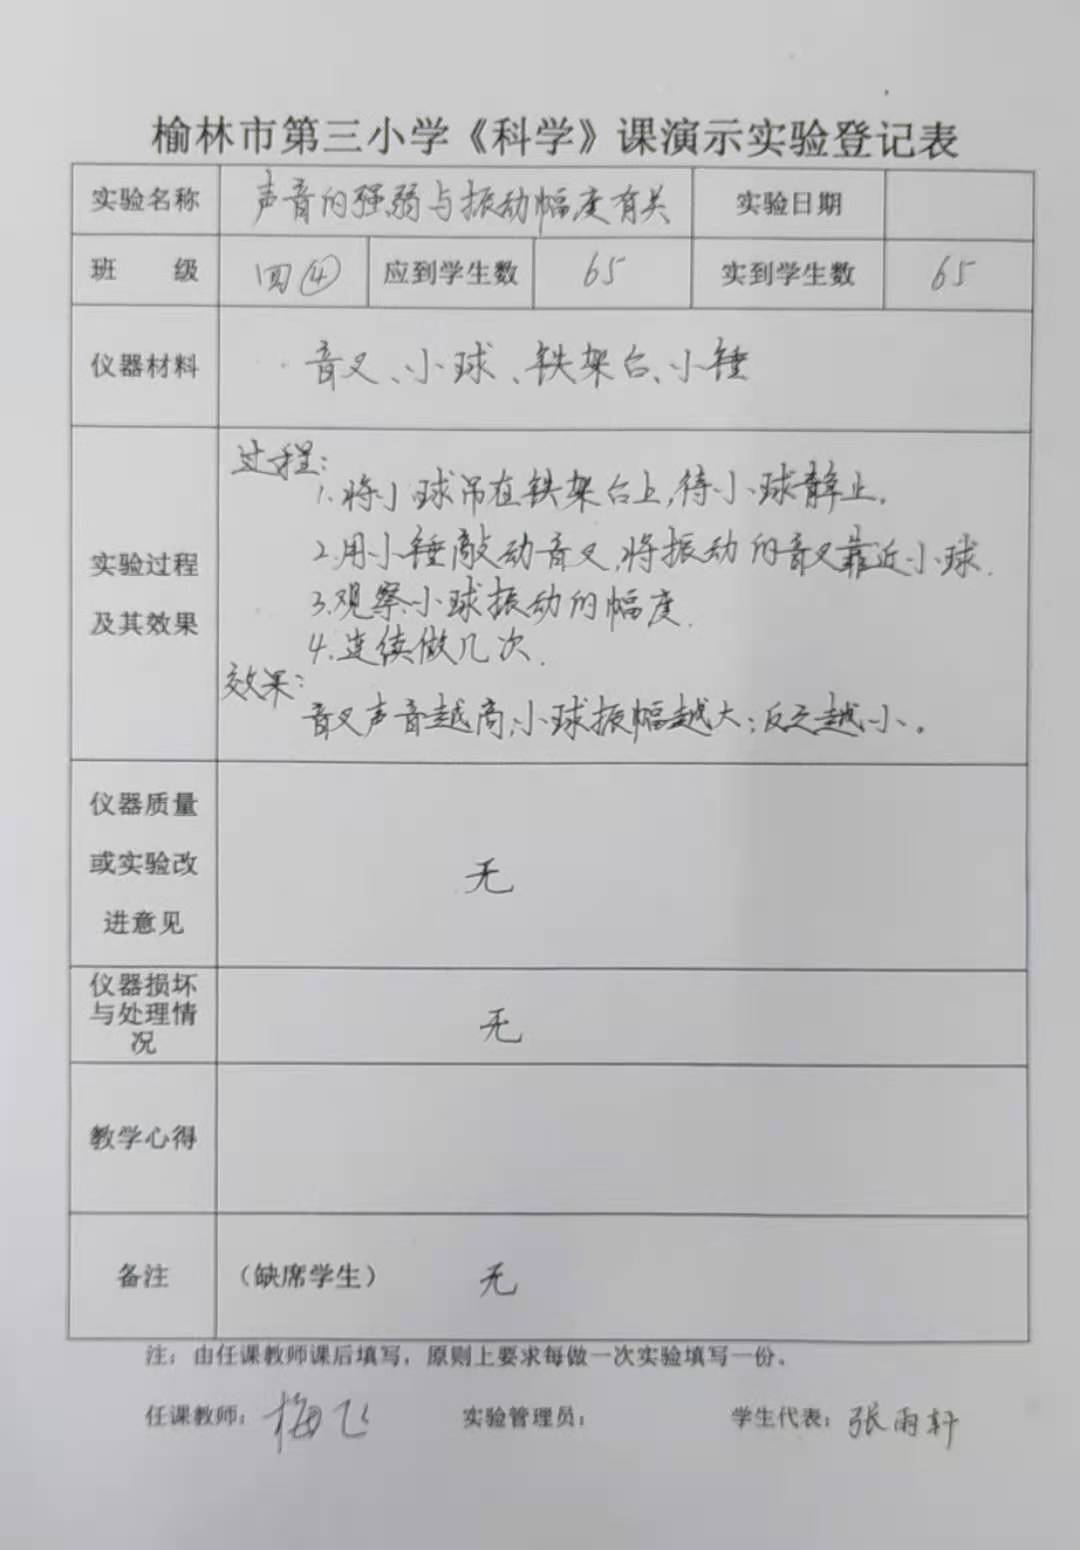 榆林市第三小学《科学》课演示实验登记表
实验名称 声音的强弱与振动幅度有关 实验日期
班 级 四④ 应到学生数 65 实到学生数 65
仪器材料 音叉、小球、铁架台、小锤
实验过程
及其效果
过程:
1.将小球吊在铁架台上,待小球静止.
2.用小锤敲动音叉,将振动的音叉靠近小球.
3.观察小球振动的幅度.
4.连续做几次.
效果:
音叉声音越高,小球振幅越大;反之越小。
仪器质量
或实验改
进意见
无
仪器损坏
与处理情
况
无
教学心得
备注 (缺席学生) 无
注：由任课教师课后填写，原则上要求每做一次实验填写一份。
任课教师：梅飞 实验管理员： 学生代表：张雨轩